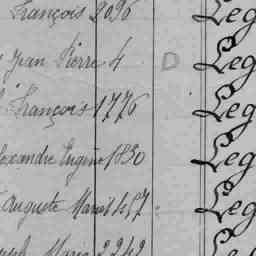 François 2096 Leg
Jean Pierre 4 D Leg
François 1776 Leg
lexandre Eugène 1830 Leg
Auguste Marie 457 Leg
Marie 2242 Leg